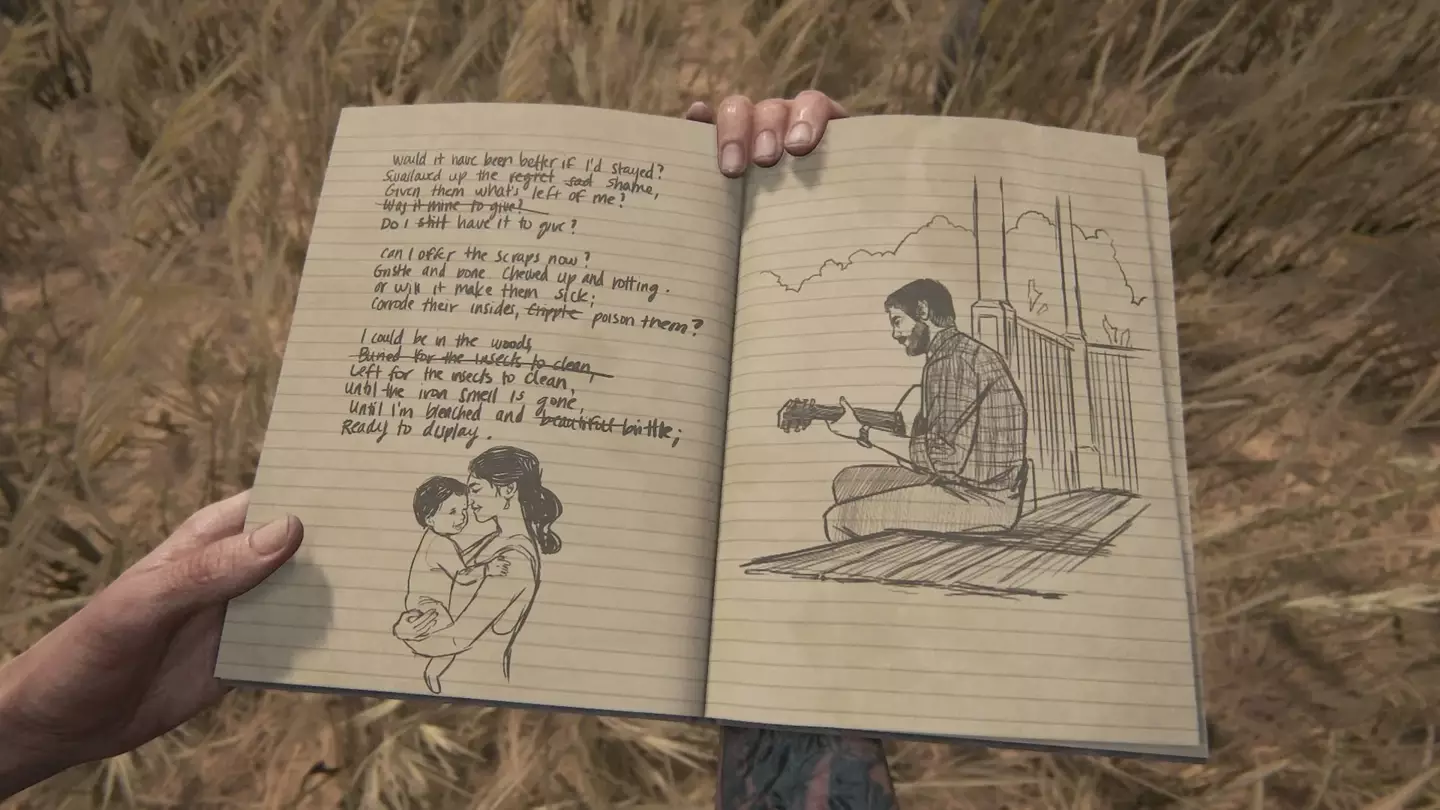 would it have been better if I'd stayed?
Swallowed up the regret sad shame,
Given them what's left of me?
Was it mine to give?
Do I still have it to give?
can I offer the scraps now?
Gristle and bone chewed up and rotting.
or will it make them sick;
corrode their insides, cripple poison them?
I could be in the woods,
Buried for the insects to clean,
Left for the insects to clean,
until the iron smell is gone,
until I'm bleached and beautiful brittle;
Ready to display.